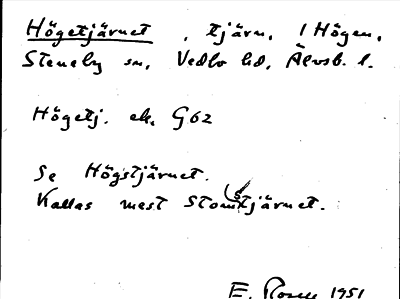 Högetjärnet, tjärn, i Högen,
Steneby sn, Vedbo hd, Älvsb. l.
Högetj. ek. G62
Se Högstjärnet.
Kallas mest Stomstjärnet.
E. Rosell 1951